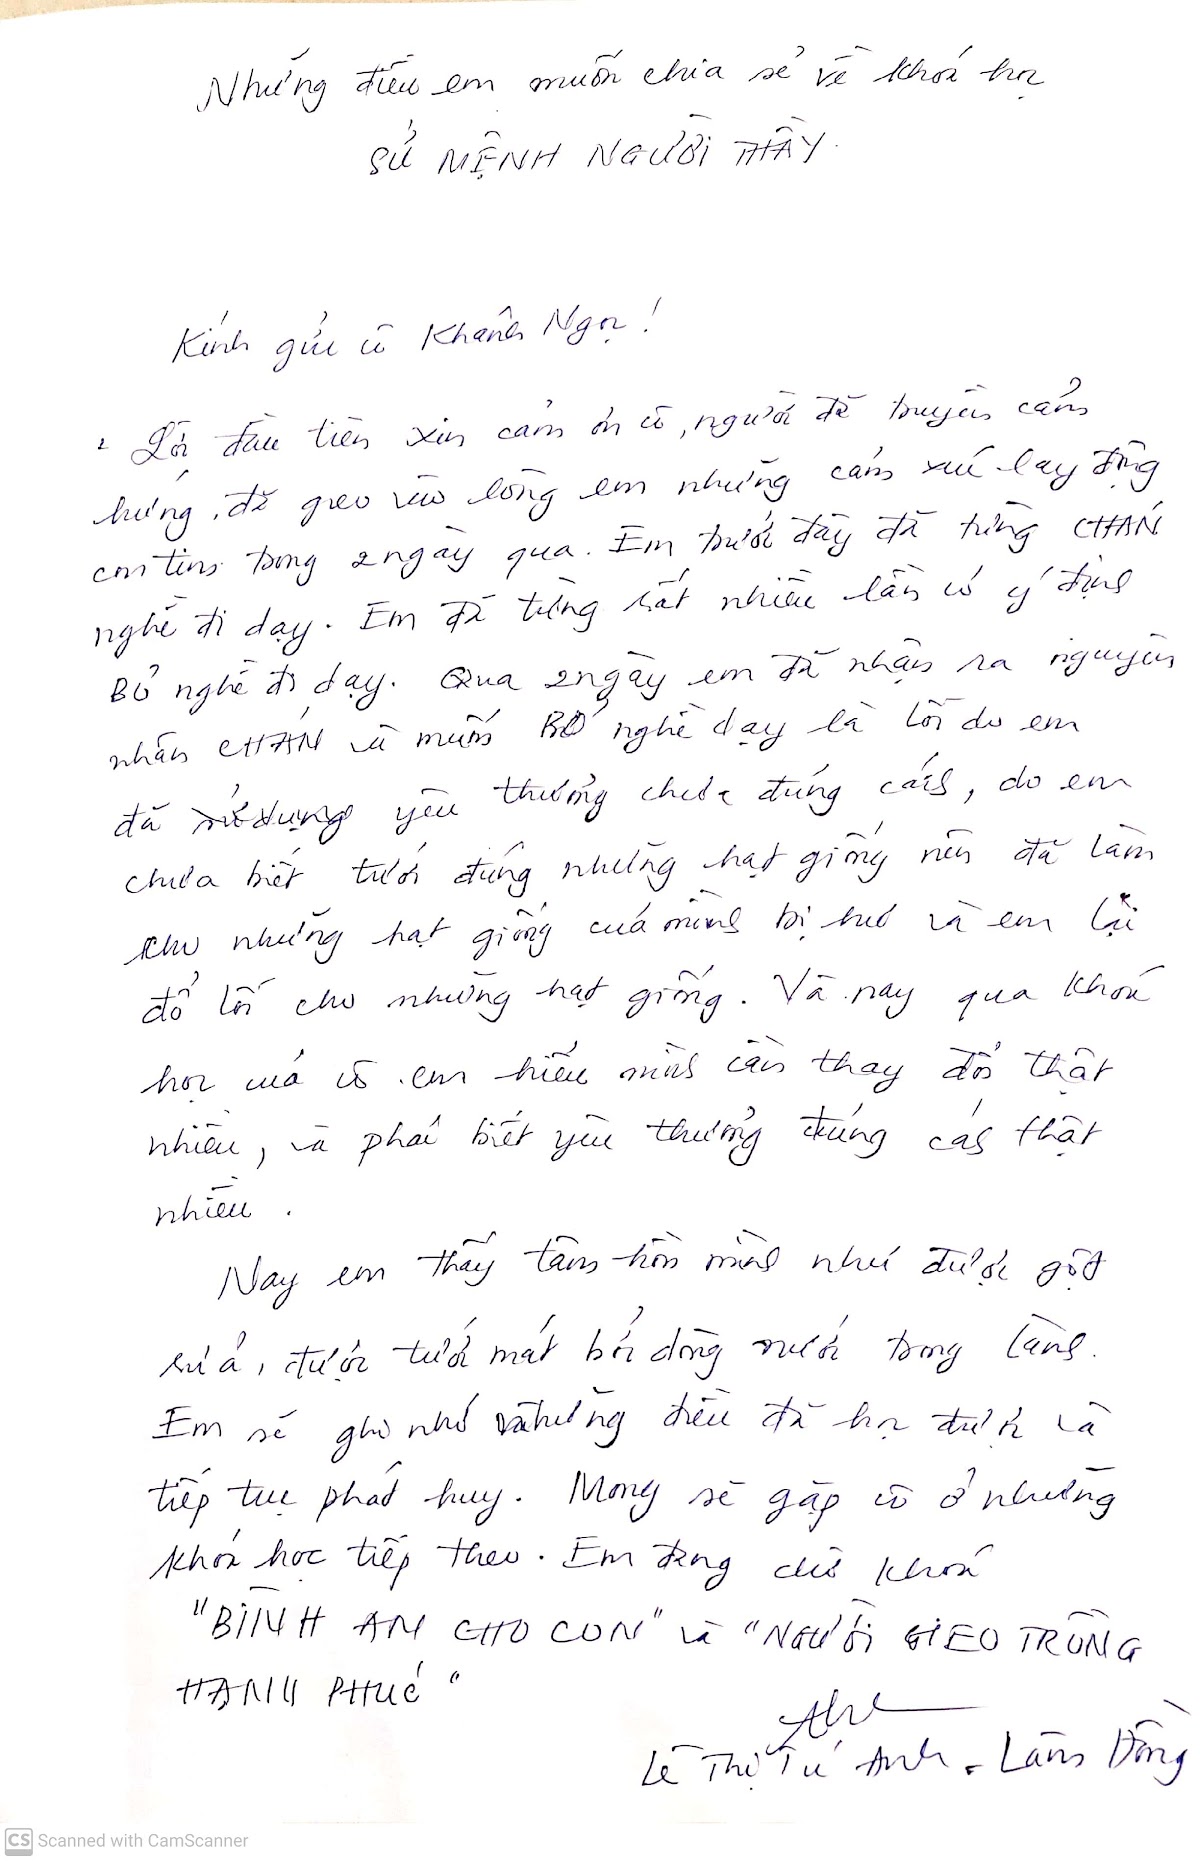 Những điều em muốn chia sẻ về khoá học
SỨ MỆNH NGƯỜI THẦY.
Kính gửi cô Khánh Ngọc!
Lời đầu tiên xin cảm ơn cô, người đã truyền cảm
hứng, đã gieo vào lòng em những cảm xúc lay động
con tim trong 2 ngày qua. Em trước đây đã từng CHÁN
nghề đi dạy. Em đã từng rất nhiều lần có ý định
BỎ nghề đi dạy. Qua 2 ngày em đã nhận ra nguyên
nhân CHÁN và muốn BỎ nghề dạy là lỗi do em
đã sử dụng yêu thương chưa đúng cách, do em
chưa biết tưới đúng những hạt giống nên đã làm
cho những hạt giống của mình bị hư và em lại
đổ lỗi cho những hạt giống. Và nay qua khoá
học của cô em hiểu mình cần thay đổi thật
nhiều, và phải biết yêu thương đúng cách thật
nhiều.
Nay em thấy tâm hồn mình như được gột
rửa, được tưới mát bởi dòng nước trong lành.
Em sẽ ghi nhớ những điều đã học được và
tiếp tục phát huy. Mong sẽ gặp cô ở những
khoá học tiếp theo. Em đang chờ khoá
"BÌNH AN CHO CON" và "NGƯỜI GIEO TRỒNG
HẠNH PHÚC"
Lê Thị Tú Anh - Lâm Đồng
CS Scanned with CamScanner